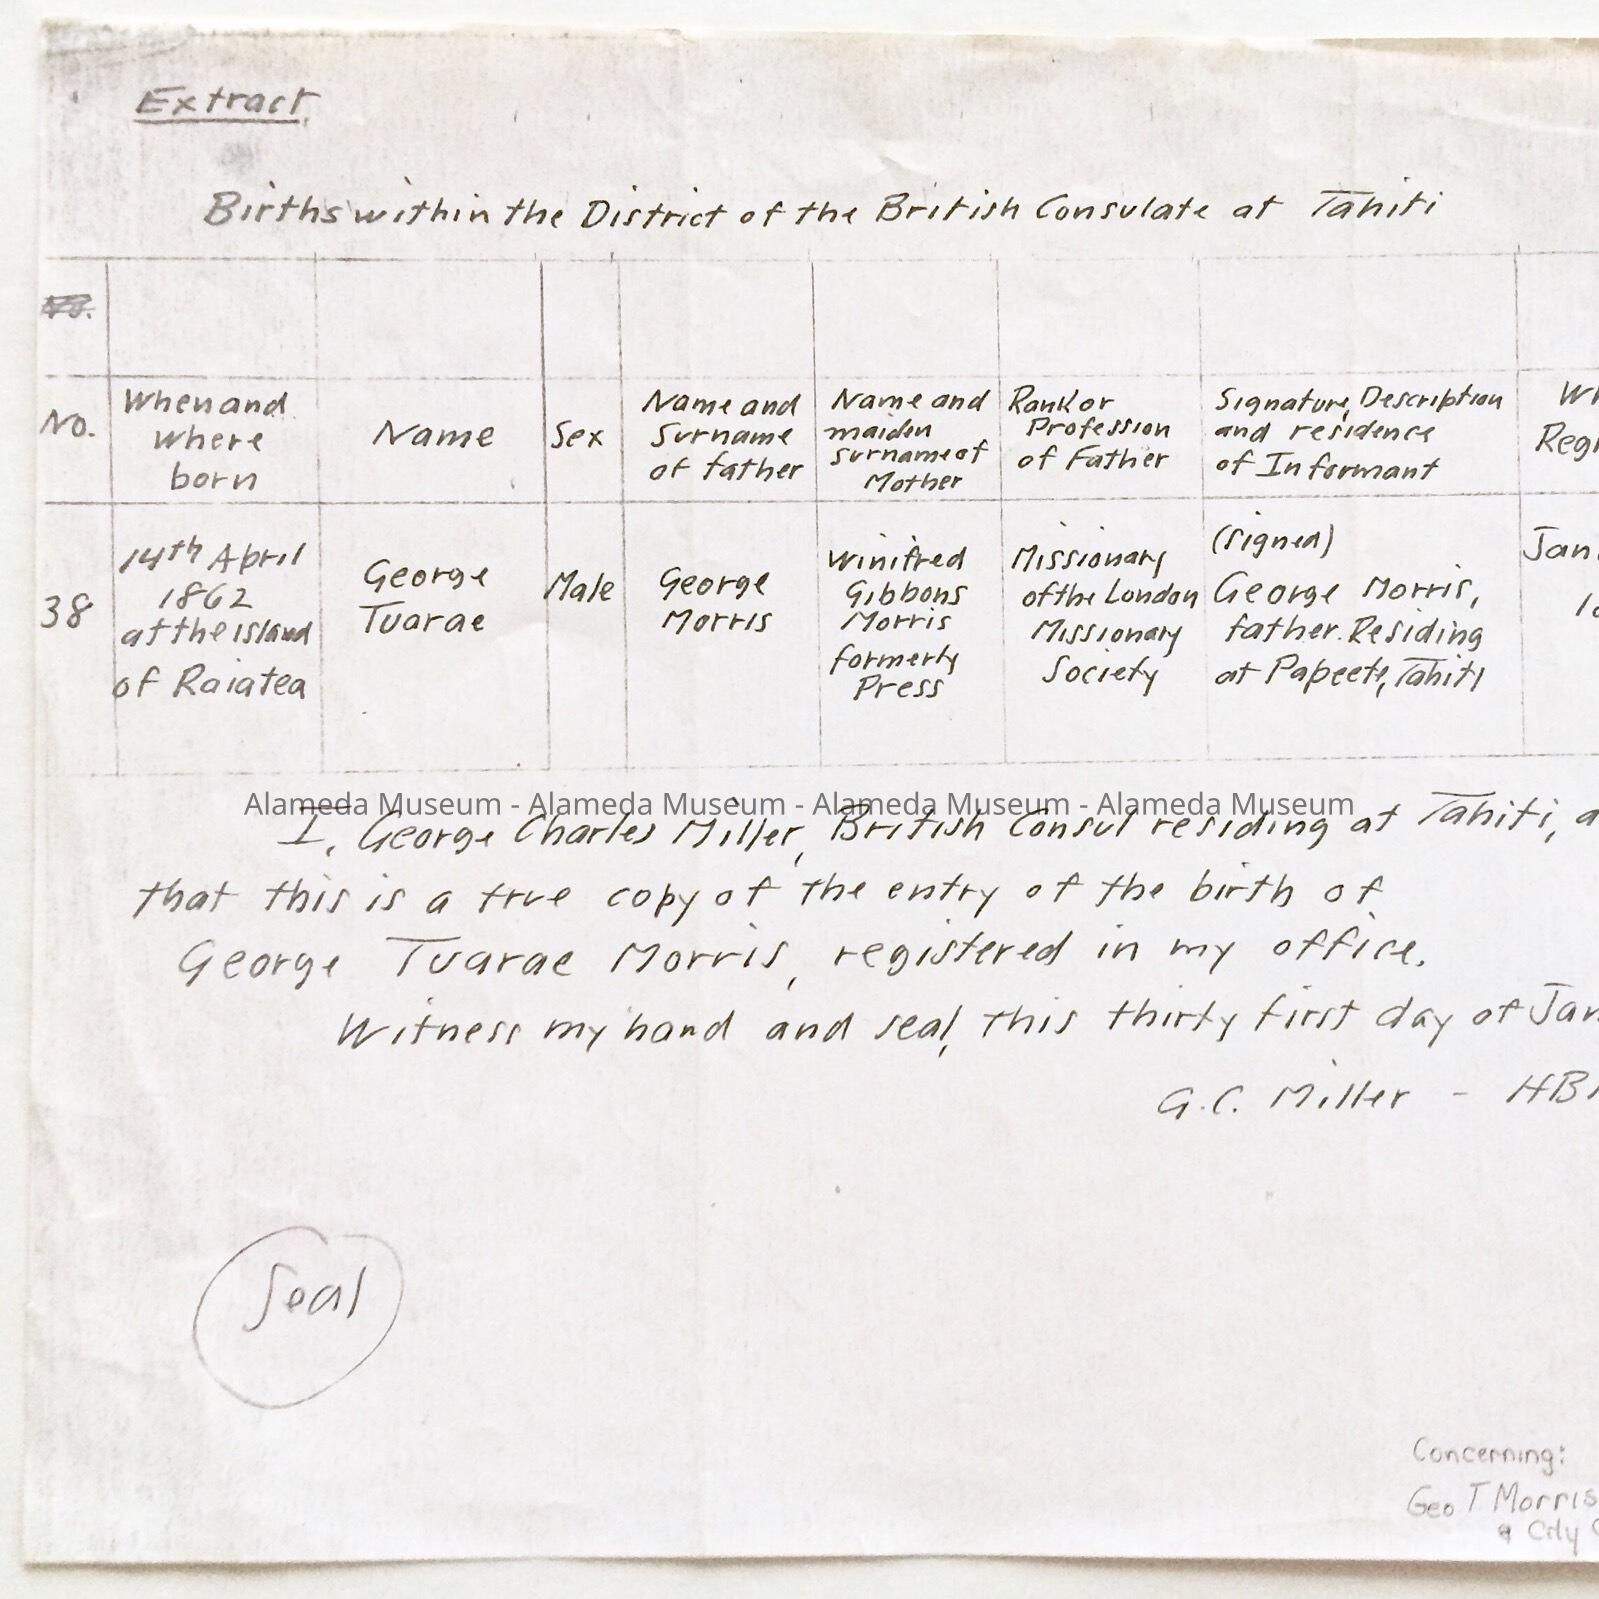 Extract
Births within the District of the British Consulate at Tahiti
No.
When and
where
born
Name
Sex
Name and
Surname
of father
Name and
maiden
surname of
Mother
Rank or
Profession
of Father
Signature, Description
and residence
of Informant
Wh
Regi
38
14th April
1862
at the island
of Raiatea
George
Tuarae
Male
George
Morris
Winifred
Gibbons
Morris
formerly
Press
Missionary
of the London
Missionary
Society
(signed)
George Morris,
father. Residing
at Papeete, Tahiti
Jan
Alameda Museum - Alameda Museum - Alameda Museum - Alameda Museum
I, George Charles Miller, British Consul residing at Tahiti,
that this is a true copy of the entry of the birth of
George Tuarae Morris, registered in my office.
Witness my hand and seal, this thirty first day of Jan
G.C. Miller - HB
Seal
Concerning:
Geo T Morris
City